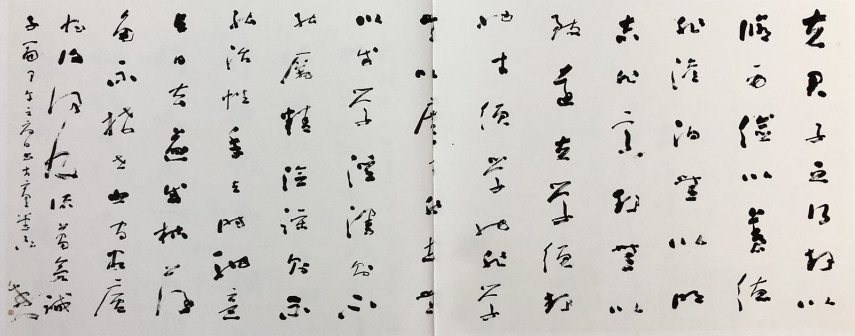 夫君子之行靜以
脩身儉以養德
非澹泊無以明
志非寧靜無以
致遠夫學須靜
也才須學也非學
無以廣才非志無
以成學淫漫則不
能勵精險躁則不
能治性年與時馳意
與日去遂成枯落
多不接世悲守窮廬
將復何及 葛亮誡
子書